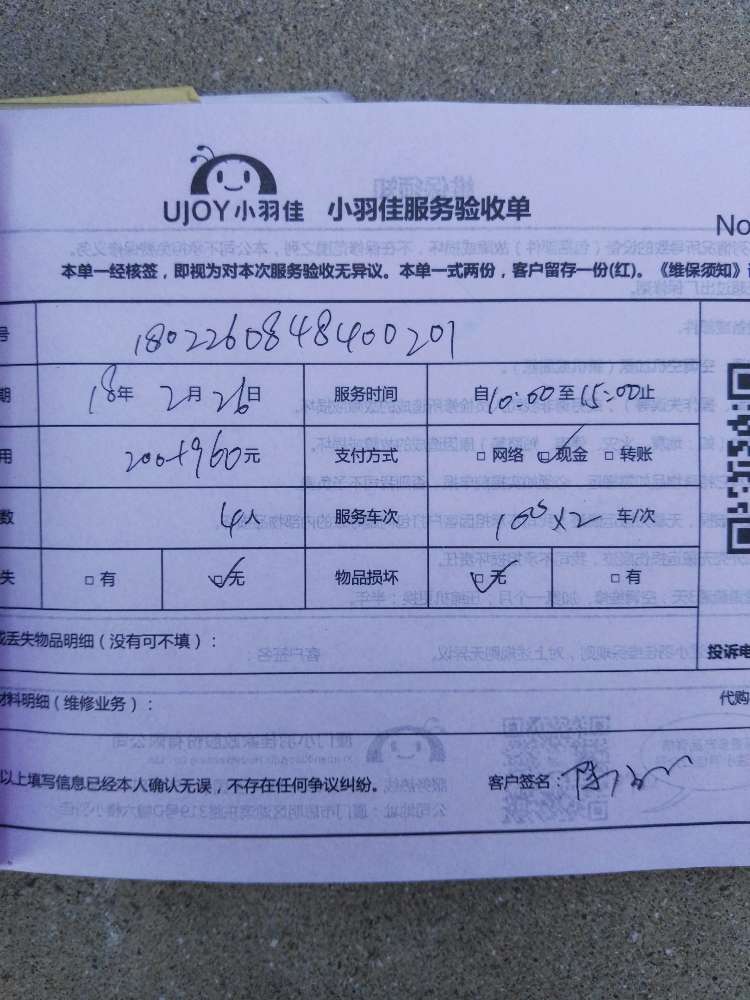 UJOY小羽佳 小羽佳服务验收单
No
本单一经核签，即视为对本次服务验收无异议。本单一式两份，客户留存一份(红)。《维保须知》
号 180226084848400201
期 18年 2月 26日 服务时间 自10:00至15:00止
用 200+960元 支付方式 □网络 ☑现金 □转账
数 4人 服务车次 车/次
失 □有 ☑无 物品损坏 ☑无 □有
成丢失物品明细（没有可不填）： 投诉电
材料明细（维修业务）： 代购
以上填写信息已经本人确认无误，不存在任何争议纠纷。 客户签名：陈